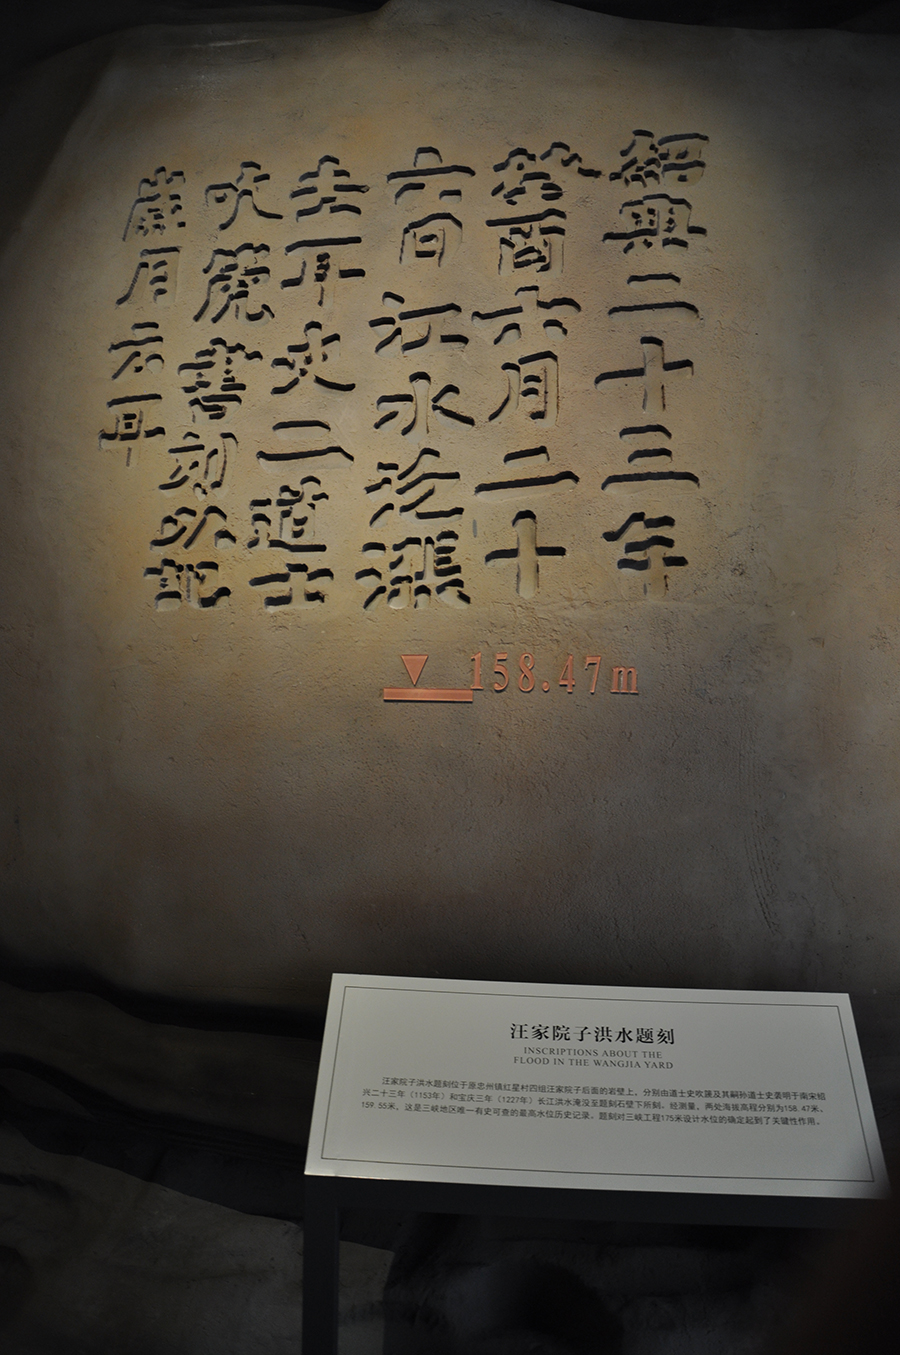 紹興二十三年
癸酉六月二十
六日江水泛漲
去耳史二道士
吹篪書刻以記
歲月云耳
158.47m
汪家院子洪水题刻
INSCRIPTIONS ABOUT THE
FLOOD IN THE WANGJIA YARD
汪家院子洪水题刻位于原忠州镇红星村四组汪家院子后面的岩壁上，分别由道士史吹篪及其嗣孙道士史袭明于南宋绍
兴二十三年（1153年）和宝庆三年（1227年）长江洪水淹没至题刻石壁下所刻。经测量，两处海拔高程分别为158.47米、
159.55米。这是三峡地区唯一有史可查的最高水位历史记录。题刻对三峡工程175米设计水位的确定起到了关键性作用。